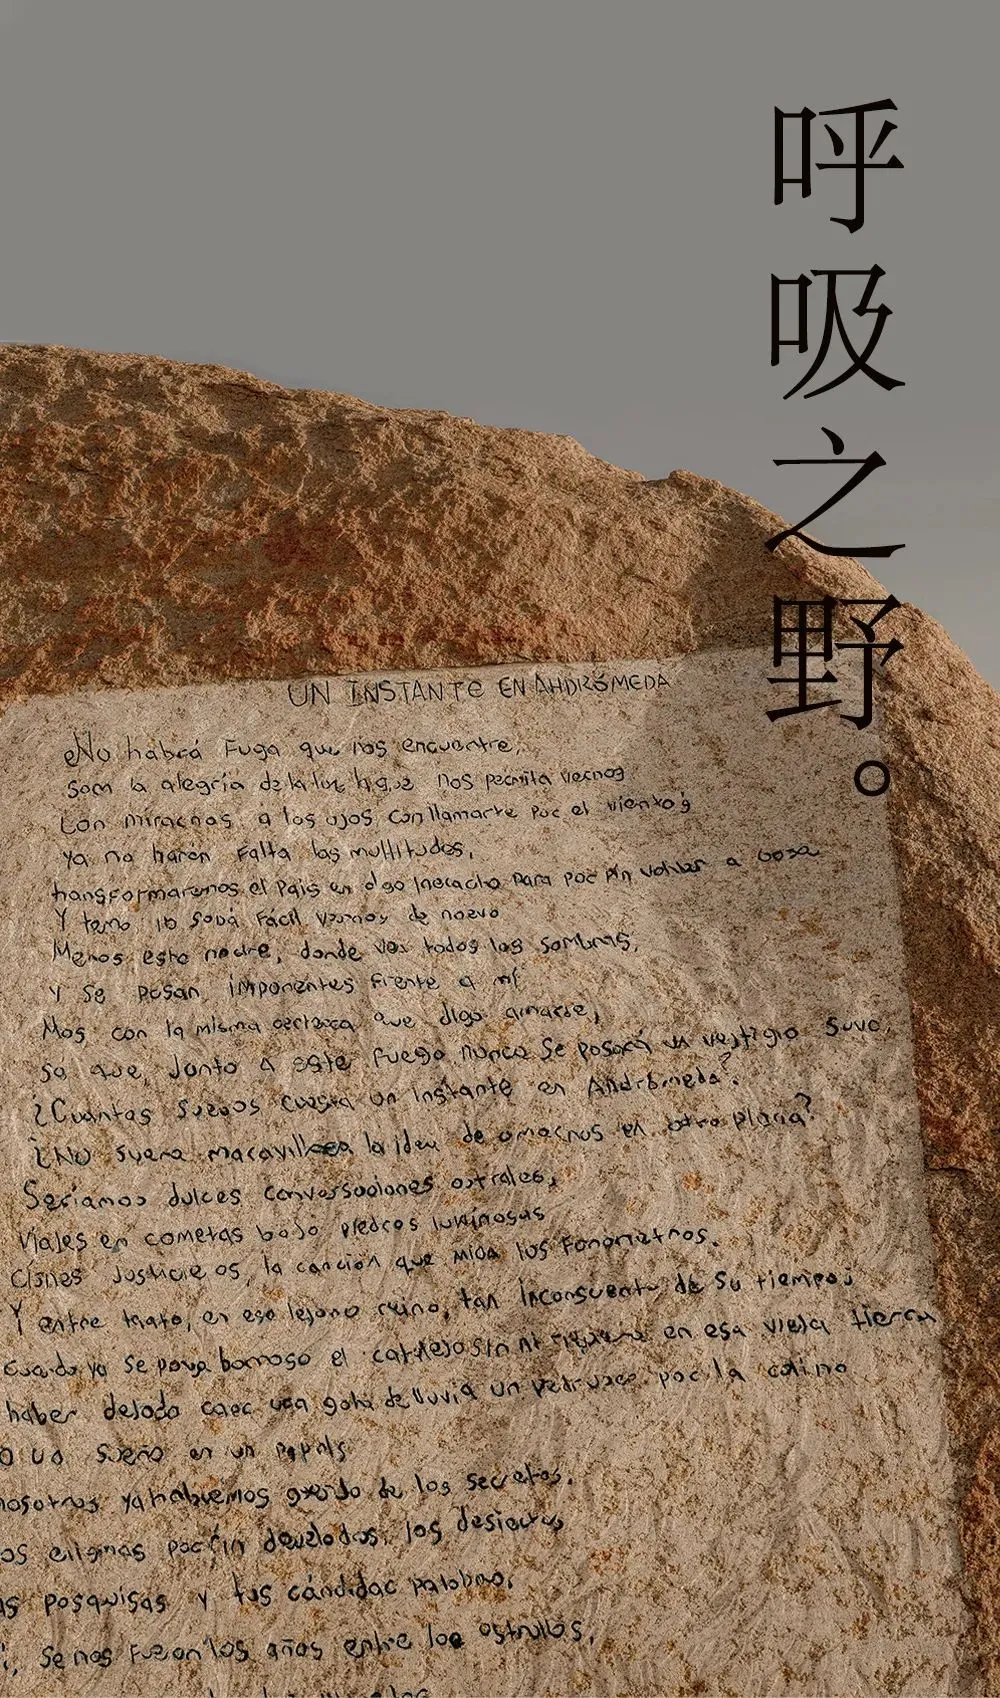 呼吸之野。
UN INSTANTE EN ANDRÓMEDA
No habrá Fuga que nos encuentre,
Som la alegría de la luz que nos permita vernos
Con mirarnos a los ojos, con llamarte por el viento
ya no harán Falta las multitudes,
transformaremos el País en algo para por fin volver a
Y temo no será Fácil vernos de nuevo
Menos esta noche, donde veo todos las sombras,
y se posan imponentes frente a mí
Mas con la misma certeza que digo amarte,
sé que Junto a este Fuego nunca se posará un vestigio suyo,
¿Cuántos sueños cuesta un Instante en Andrómeda?
¿No suena maravillosa la idea de amarnos en otro plana?
Seríamos dulces conversaciones astrales,
Viajes en cometas bajo piedras luminosas
Cisnes Justicieros, la canción que mida los Fonómetros.
Y entre tanto, en ese lejano, tan Inconsuente de Su tiempo;
cuando ya se ponga borroso el sin ni siquiera en esa vieja tierra
haber dejado caer una gota de lluvia un por la colina
o un sueño en un papel
nosotros ya habremos de los secretos,
los enigmas por fin develados, los desiertos
as pesquisas y tus cándidas palabras,
Se nos Fueron los años entre las estrellas,